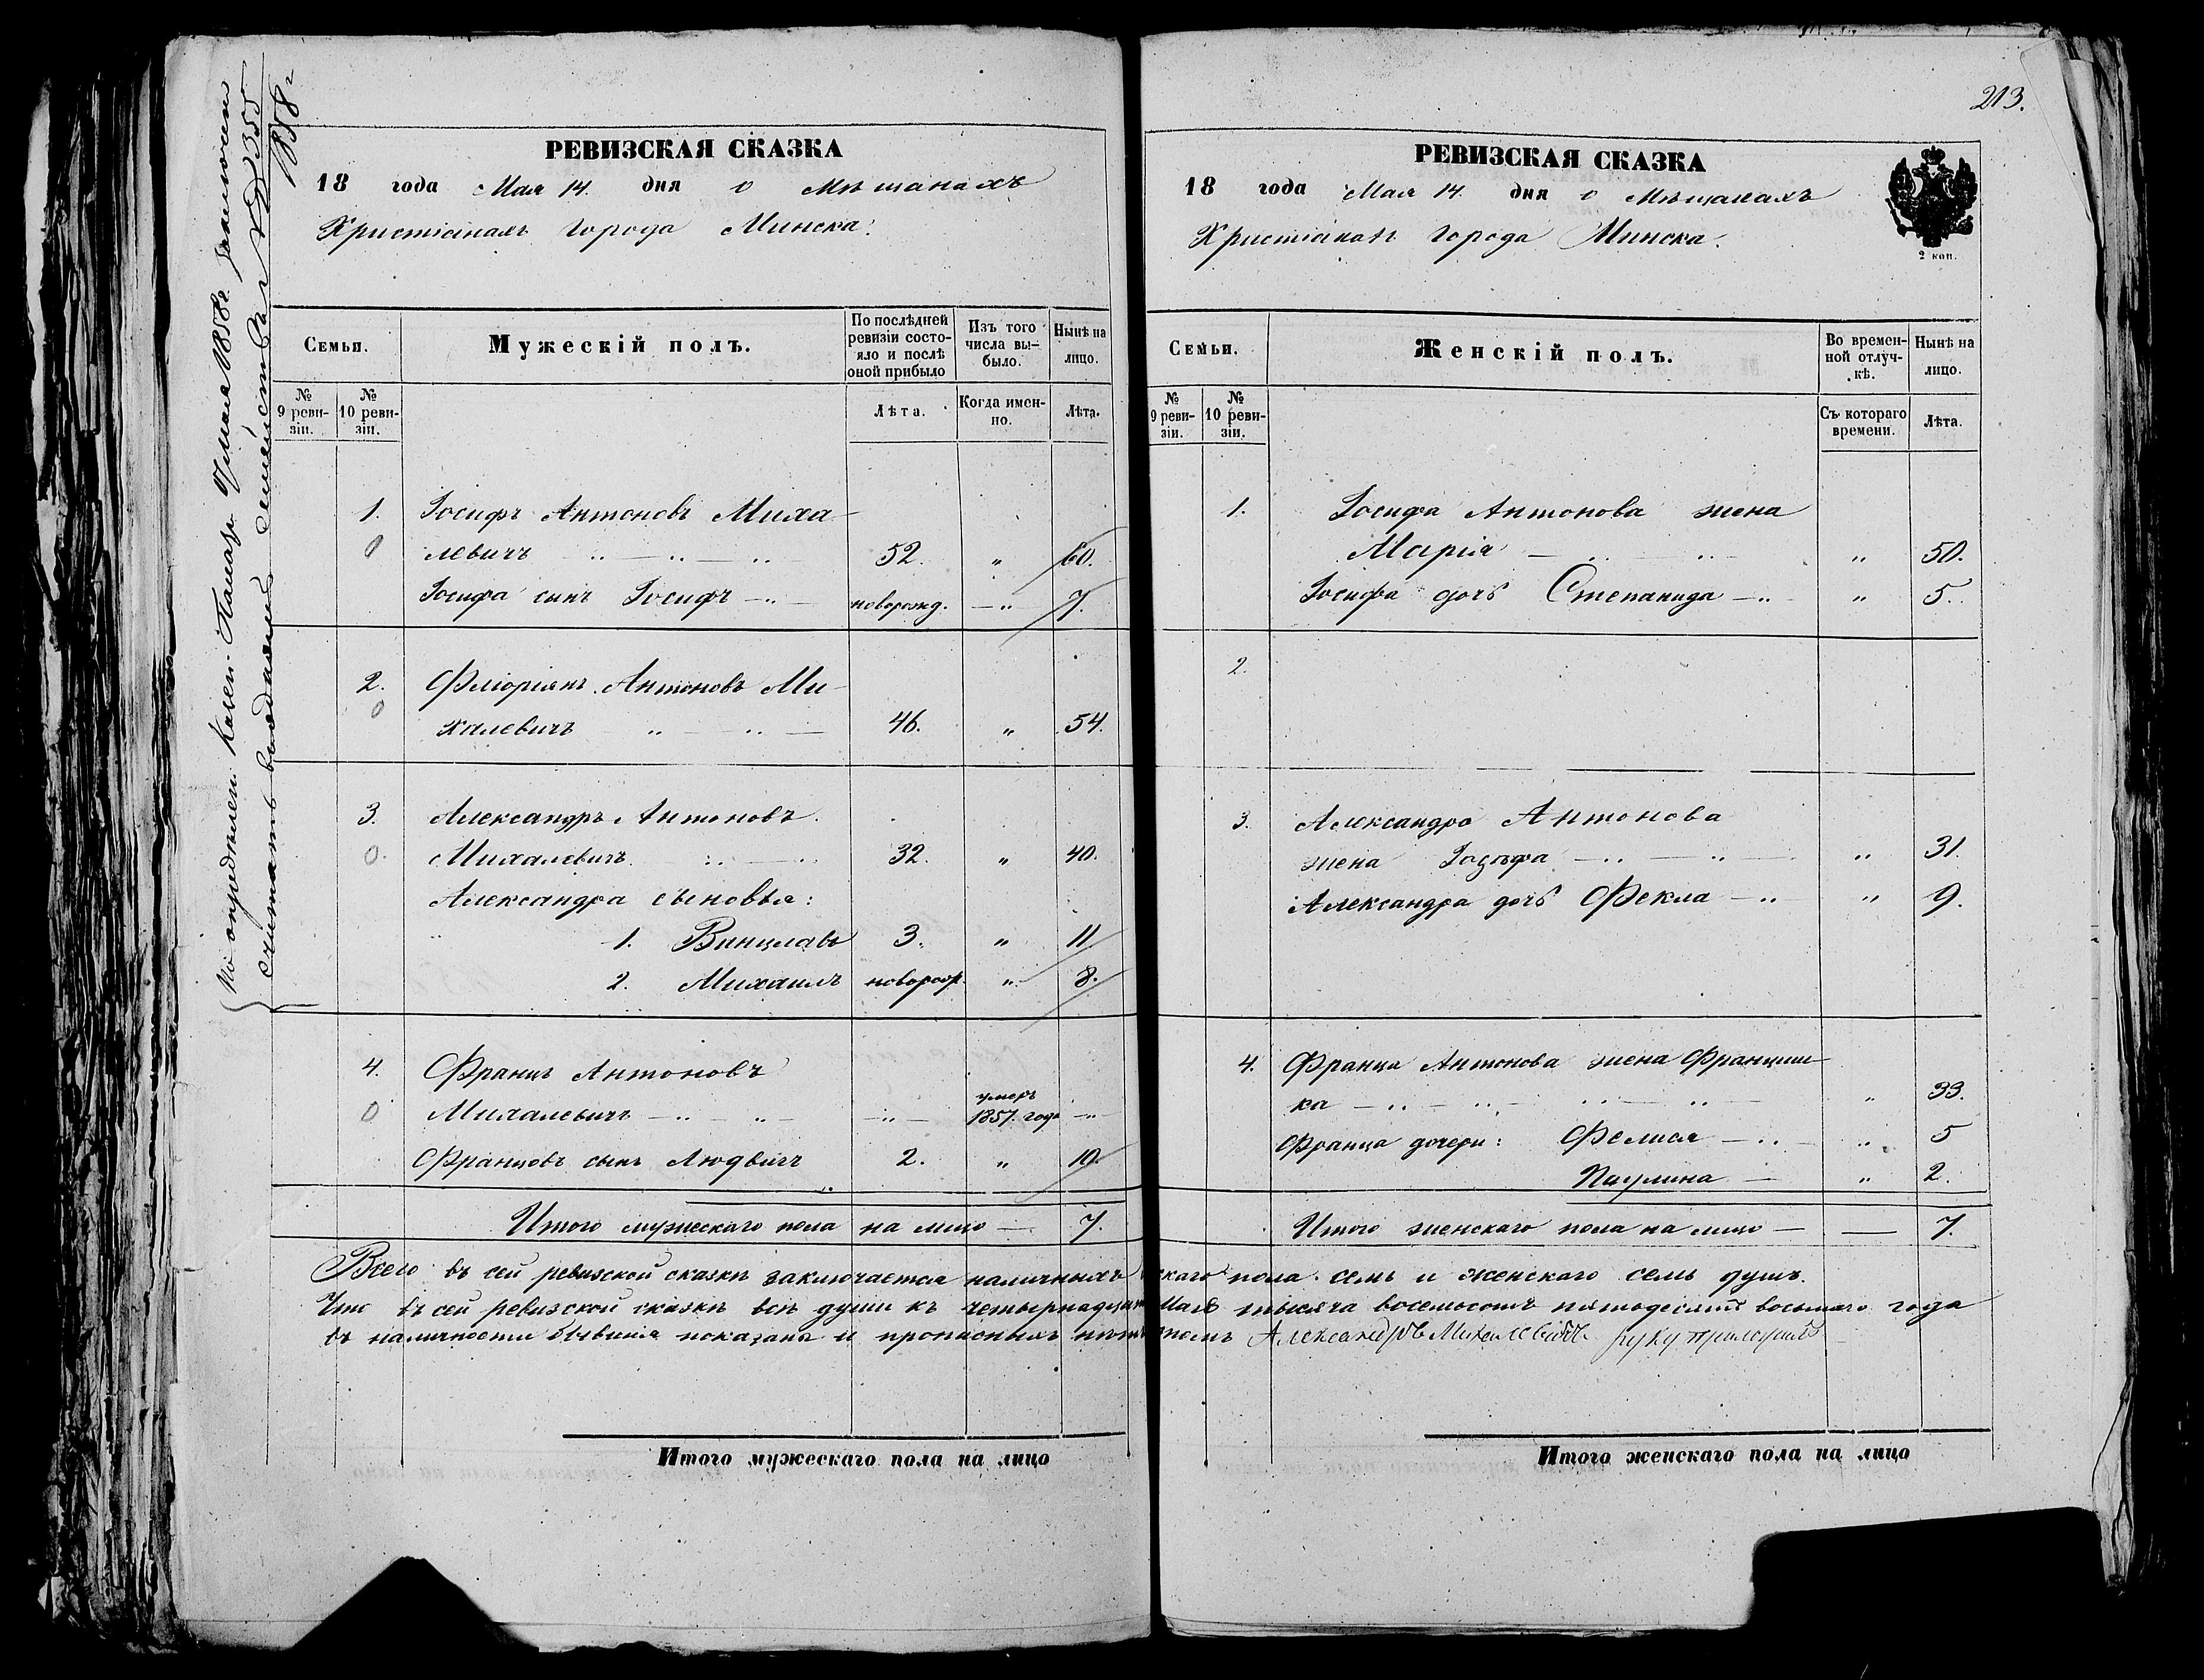 По опредѣлен. Казен. Палат. 9 мая 1858 г.
считать выходящий семейства
1858 г
213.
РЕВИЗСКАЯ СКАЗКА
18 года Мая 14. дня о Мѣщанахъ
Христіанахъ Города Минска.
Семьи.
Мужескій полъ.
По послѣдней ревизіи состояло и послѣ оной прибыло
Изъ того числа выбыло.
Нынѣ на лицо.
№ 9 ревизіи.
№ 10 ревизіи.
Лѣта.
Когда именно.
Лѣта.
1. Іосифъ Антоновъ Миха-
0 левичъ 52. " 60.
Іосифа сынъ Іосифъ новорожд. " 7.
2. Фліоріянъ Антоновъ Ми-
0 халевичъ 46. " 54.
3. Александръ Антоновъ
0. Михалевичъ 32. " 40.
Александра сыновья:
1. Винцлавъ 3. " 11
2. Михаилъ новорож. " 8.
4. Францъ Антоновъ
0 Михалевичъ — " — умеръ 1857. года — " —
Францовъ сынъ Людвигъ 2. " 10.
Итого мужескаго пола на лицо — 7.
РЕВИЗСКАЯ СКАЗКА
18 года Мая 14. дня о Мѣщанахъ
Христіанахъ Города Минска.
2 коп.
Семьи.
Женскій полъ.
Во временной отлучкѣ.
Нынѣ на лицо.
№ 9 ревизіи.
№ 10 ревизіи.
Съ котораго времени.
Лѣта.
1. Іосифа Антонова жена
Марія " 50.
Іосифа дочь Степанида " 5.
2.
3. Александра Антонова
жена Іозефа " 31.
Александра дочь Фекла " 9.
4. Франца Антонова жена Францишка " 33.
Франца дочери: Фелися " 5
Паулина " 2.
Итого женскаго пола на лицо — 7.
Всего въ сей ревизской сказкѣ заключается наличныхъ скаго пола семь и женскаго семь душъ.
Что въ сей ревизской сказкѣ всѣ души къ четырнадцат Мая тысяча восемьсотъ пятьдесятъ восьмаго года
въ наличности бывшія показаны и прописныхъ нѣтъ томъ Александръ Михалевичъ руку приложилъ
Итого мужескаго пола на лицо
Итого женскаго пола на лицо